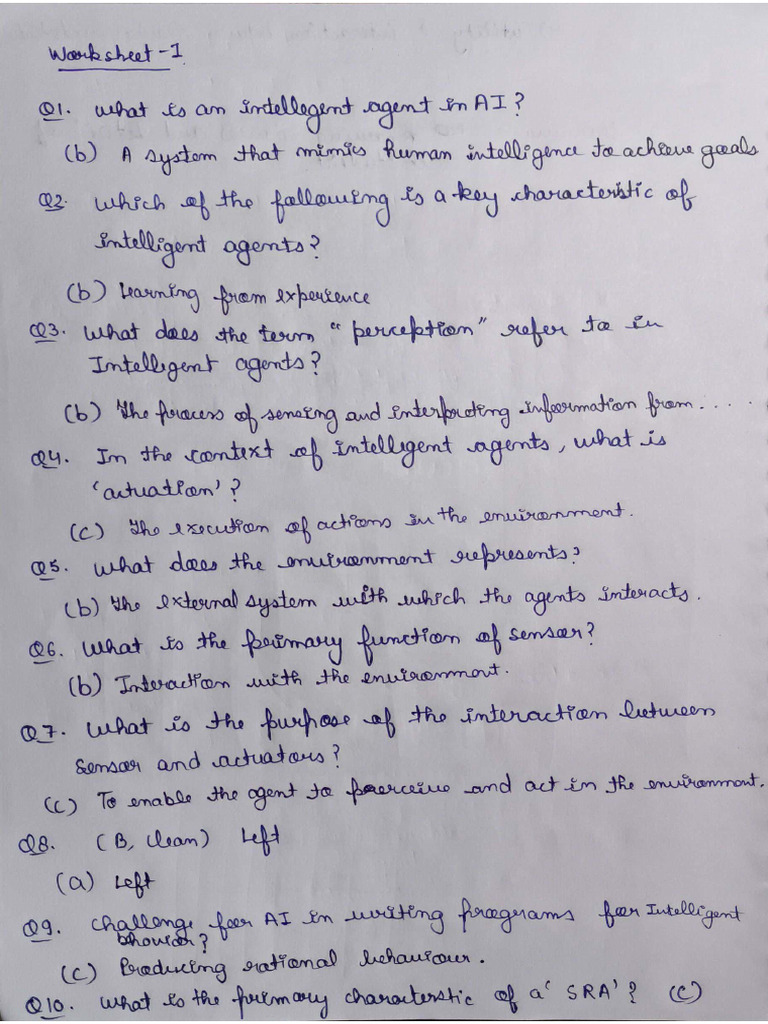 Worksheet-1
Q1. What is an intellegent agent in AI?
(b) A system that mimics human intelligence to achieve goals
Q2. Which of the following is a key characteristic of
intelligent agents?
(b) Learning from experience
Q3. What does the term "perception" refer to in
Intelligent agents?
(b) The process of sensing and interpreting information from....
Q4. In the context of intelligent agents, what is
'actuation'?
(c) The execution of actions in the environment.
Q5. What does the environment represents?
(b) The external system with which the agents interacts.
Q6. What is the primary function of sensor?
(b) Interaction with the environment.
Q7. What is the purpose of the interaction between
sensor and actuators?
(c) To enable the agent to perceive and act in the environment.
Q8. (B, Clean) Left
(a) Left
Q9. Challenge for AI in writing programs for Intelligent
bhavior?
(c) Producing rational behaviour.
Q10. What is the primary characterstic of a 'SRA'? (c)